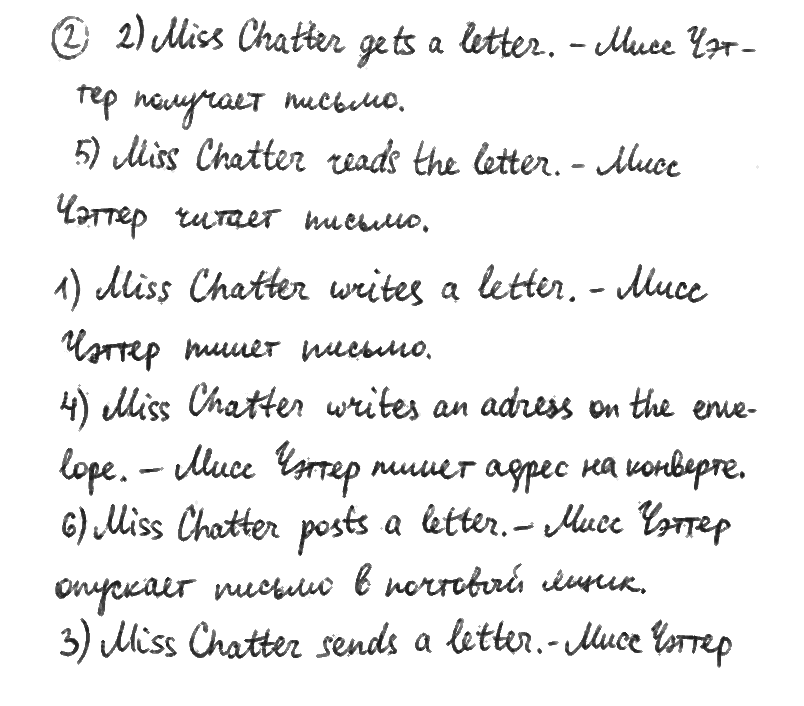 ② 2) Miss Chatter gets a letter. – Мисс Чэт-
тер получает письмо.
5) Miss Chatter reads the letter. – Мисс
Чэттер читает письмо.
1) Miss Chatter writes a letter. – Мисс
Чэттер пишет письмо.
4) Miss Chatter writes an adress on the enve-
lope. – Мисс Чэттер пишет адрес на конверте.
6) Miss Chatter posts a letter. – Мисс Чэттер
опускает письмо в почтовый ящик.
3) Miss Chatter sends a letter. – Мисс Чэттер